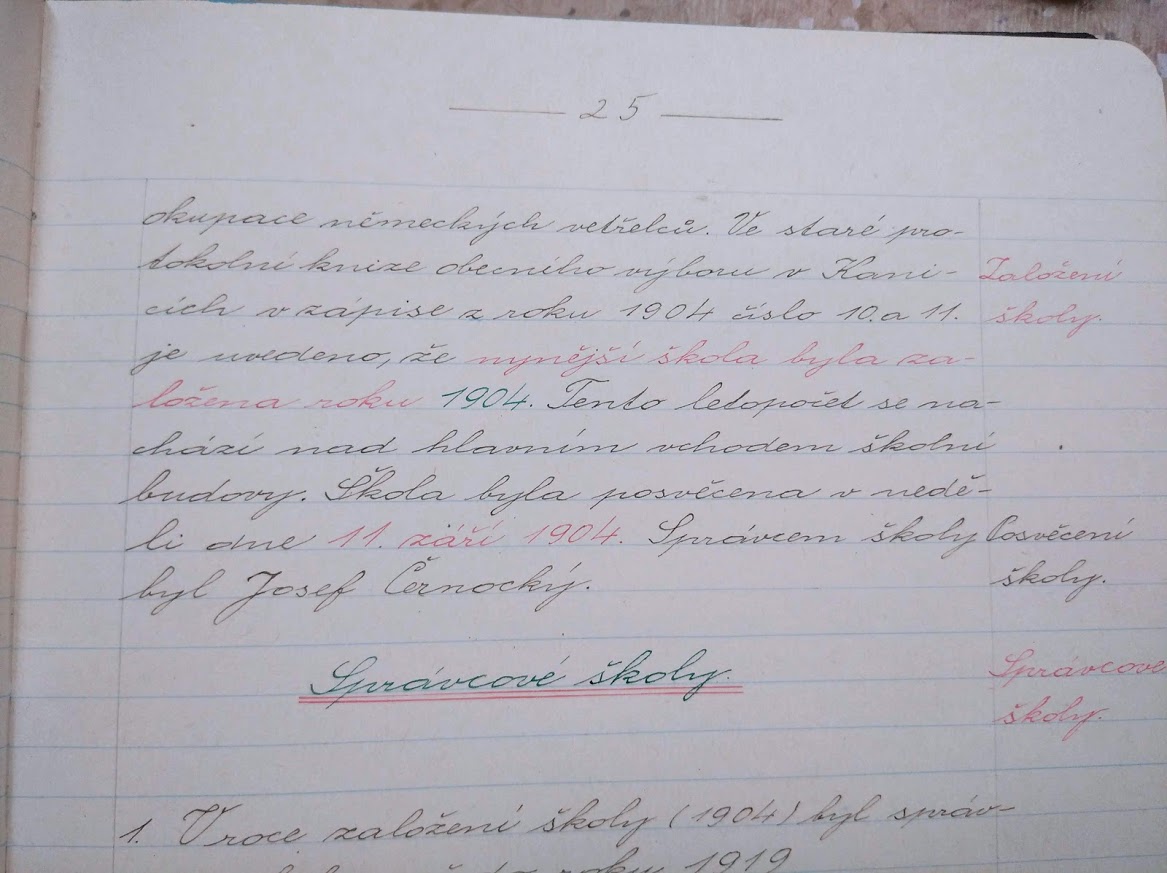 — 25 —
okupace německých vetřelců. Ve staré pro-
tokolní knize obecního výboru v Kani-
cích v zápise z roku 1904 číslo 10. a 11.
je uvedeno, že nynější škola byla za-
ložena roku 1904. Tento letopočet se na-
chází nad hlavním vchodem školní
budovy. Škola byla posvěcena v nedě-
li dne 11. září 1904. Správcem školy
byl Josef Černocký.
Založení
školy.
Posvěcení
školy.
Správcové školy.
Správcové
školy.
1. V roce založení školy (1904) byl správ-
roku 1919